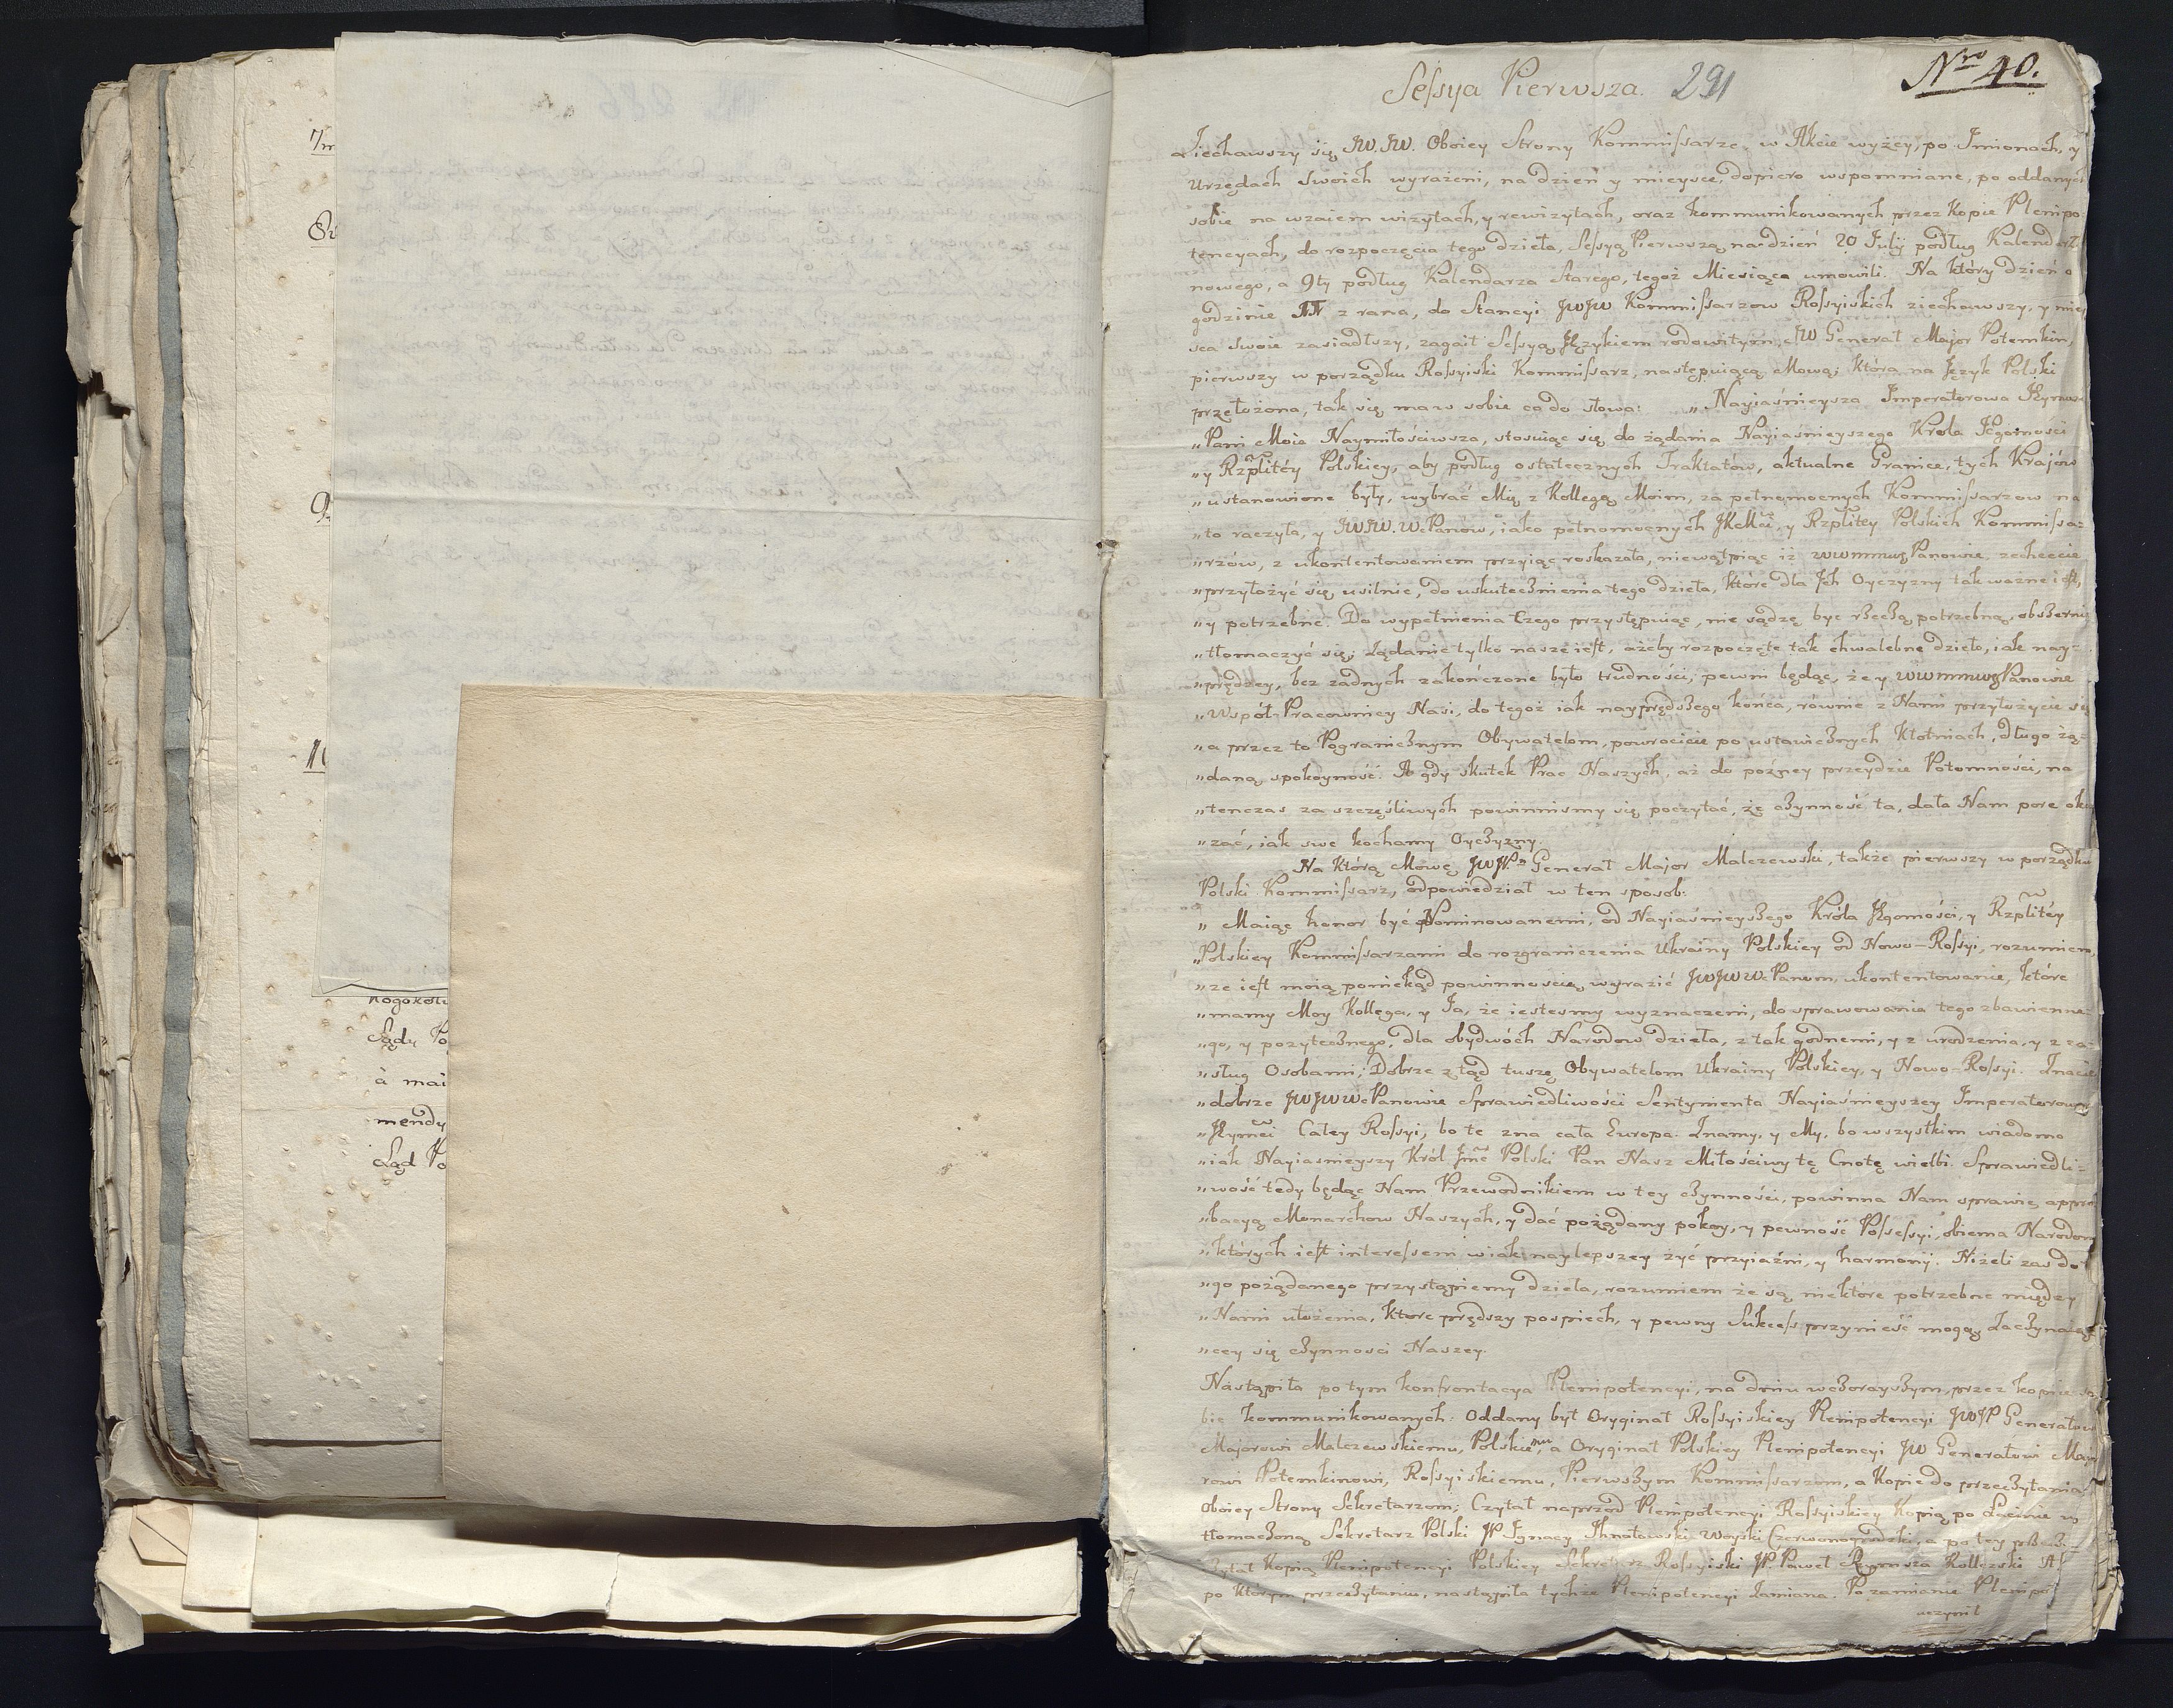 7m
8v
9
10
nogokolu
Sądu Po
à mai
mendy
Sąd Po
Seſsya Pierwsza. 291
Nro 40.
Ziechawszy się JW. JW. Oboiey Strony Kommiſsarze w Akcie wyżey, po Imionach, y
Urzędach Swoich wyrażeni, na dzień y mieysce, dopiero wspomniane, po oddanych
sobie na wzaiem wizytach, y rewizytach, oraz kommunikowanych przez Kopie Plenipo-
tencyach, do rozpoczęcia tego dzieła, Seſsyą Pierwszą na dzień 20 Julij podług Kalendarza
nowego, a 9ty podług Kalendarza Starego, tegoż Miesiąca umowili. Na który dzień o
godzinie z rana, do Stancyi JWJW Kommiſsarzow Roſsyiskich ziechawszy, y miey
sca Swoie zasiadłszy, zagait Seſsyą Językiem rodowitym, JW Generał Major Potemkin,
pierwszy w porządku Roſsyiski Kommiſsarz, następuiącą Mową, która na Język Polski
przełożona, tak się ma w sobie co do słowa: „ Nayiaśnieysza Imperatorowa Jeymć
„Pani Moia Naymiłościwsza, stosuiąc się do żądania Nayiaśnieyszego Krola Jegomości
„y Rzplitéy Polskiey, aby podług ostatecznych Traktatów, aktualne Granice, tych Krajów
„ustanowione były, wybrać Mię z Kollegą Moim, za pełnomocnych Kommiſsarzow na
„to raczyła, y JWJW. WcPanów, iako pełnomocnych JKMci, y Rzplitey Polskich Kommiſsa-
„rzów, z ukontentowaniem przyiąć roskazała, niewątpiąc iż Panowie, zechcecie
„przyłożyć się usilnie, do uskutecznienia tego dzieła, które dla Jch Oyczyzny tak ważne iest,
„y potrzebne. Do wypełnienia czego przystępuiąc, nie sądzę być rzeczą potrzebną, obszernie
„tłomaczyć się; Żądanie tylko nasze iest, ażeby rozpoczęte tak chwalebne dzieło, iak nay-
„prędzey, bez żadnych zakończone było trudności; pewni będąc, że y Panowie
„Współ-Pracownicy Nasi, do tegoż iak nayprędszego końca, równie z Nami przyłożycie się
„a przez to Pogranicznym Obywatelom, powrocicie po ustawicznych Kłotniach, długo żą-
„daną spokoyność. A gdy skutek Prac Naszych, aż do poźney przeydzie Potomności, na
„tenczas za szczęśliwych powinnismy się poczytać, że czynność ta, dała Nam pore oka
„zać, iak swe kochamy Oyczyzny.
Na którą Mowę JWJP. Generał Major Malczewski, także pierwszy w porządku
Polski Kommiſsarz, odpowiedział w ten sposob:
„ Maiąc honor być Nominowanemi, od Nayiaśnieyszego Króla Jegomości, y Rzplitéy
„Polskiey Kommiſsarzami do rozgraniczenia Ukrainy Polskiey od Nowo-Roſsyi, rozumiem,
„że iest moią poniekąd powinnością, wyrazić JWJW WcPanom, ukontentowanie, które
„mamy Moy Kollega, y Ja, że iestesmy wyznaczeni, do sprawowania tego zbawienne-
„go, y pozytecznego, dla obydwóch Narodow dzieła, z tak godnemi, y z urodzenia, y z za-
„sług Osobami; Dobrze ztąd tuszę Obywatelom Ukrainy Polskiey, y Nowo-Roſsyi. Znacie
„dobrze JWJW WcPanowie Sprawiedliwości Sentymenta Nayiaśnieyszey Imperatorowey
„Jeymci Całey Roſsyi, bo te zna cała Europa. Znamy, y My, bo wszystkim wiadomo
„iak Nayiasnieyszy Król Jmć Polski Pan Nasz Miłościwy tę Cnotę wielbi. Sprawiedli-
„wość tedy będąc Nam Przewodnikiem w tey czynności, powinna Nam sprawić appro
„bacyą Monarchow Naszych, y dać pożądany pokoy, y pewność Poſseſsyi, obiema Narodom
„których iest intereſsem w iak naylepszey żyć przyiaźni, y harmonij. Niżeli zas do te
„go pożądanego przystąpiemy dzieła, rozumiem że są niektóre potrzebne między
„Nami ułożenia, które prędszy pospiech, y pewny Sukceſs przynieść mogą Zaczynaią
„cey się czynnosci Naszey.
Nastąpiła po tym konfrontacya Plenipotencyi, na dniu wczorayszym, przez kopie so
bie kommunikowanych: Oddany był Oryginał Roſsyiskiey Plenipotencyi JWJP Generałow
Majorowi Malczewskiemu, Polskiemu, a Oryginał Polskiey Plenipotencyi JW Generałowi Maio
rowi Potemkinowi, Roſsyiskiemu, Pierwszym Kommiſsarzom, a Kopie do przeczytania
Oboiey Strony Sekretarzom; Czytał naprzod Plenipotencyi Roſsyiskiey Kopią po Łacinie w
tłomaczoną Sekretarz Polski JP Ignacy Woyski Czerwonogrodzki, a po tey przeczy-
czytał Kopią Plenipotencyi Polskiey Sekretarz Roſsyiski JP. Paweł Rymsza Kolleżski
po którym przeczytaniu, nastąpiła tychże Plenipotencyi Zamiana. Po zamianie Plenipo
uczynił